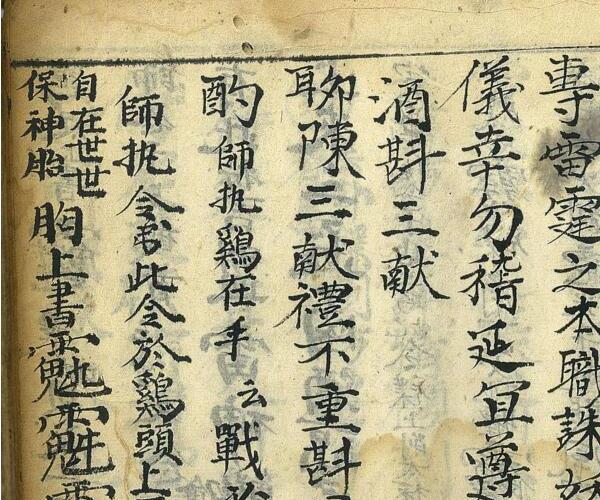 專雷霆之本職誅
儀幸勿稽延宜遵
酒斟三献
聊陳三献禮不重斟
酌師执鷄在手云戰
師执令書此令於鷄頭上
自在世世
保神胎胸上書